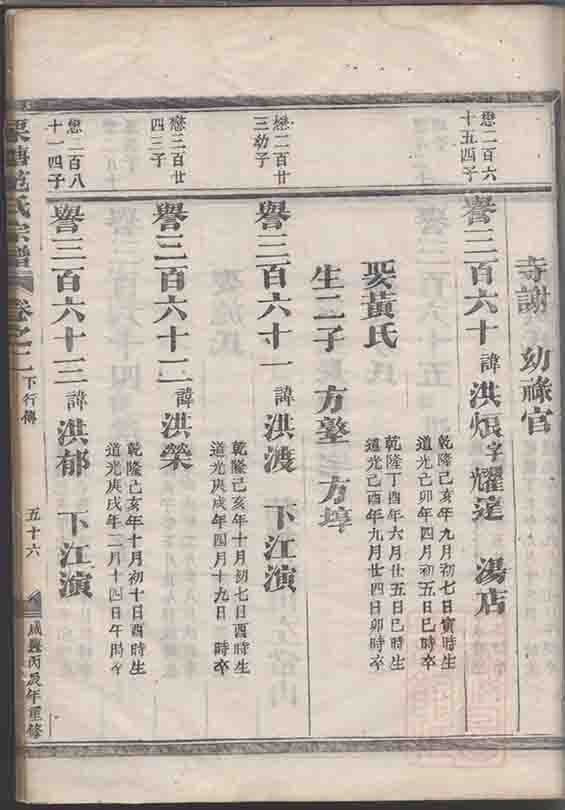 寺謝 幼祿官
懋二百六
十五四子
譽三百六十 諱洪烺字耀達 湯店
乾隆己亥年九月初七日寅時生
道光己卯年四月初五日巳時卒
娶黃氏
乾隆丁酉年六月廿五日巳時生
道光己酉年九月廿四日卯時卒
生二子 方墪 方埻
懋二百廿
三幼子
譽三百六十一 諱洪渡 下江演
乾隆己亥年十月初七日酉時生
道光庚戌年四月十九日 時卒
懋三百廿
四三子
譽三百六十二 諱洪榮
乾隆己亥年十月初十日酉時生
道光庚戌年二月十四日午時卒
懋二百八
十一四子
譽三百六十三 諱洪郁 下江演
范氏宗譜 卷之二 下行傳 五十六 咸豐丙辰年重修